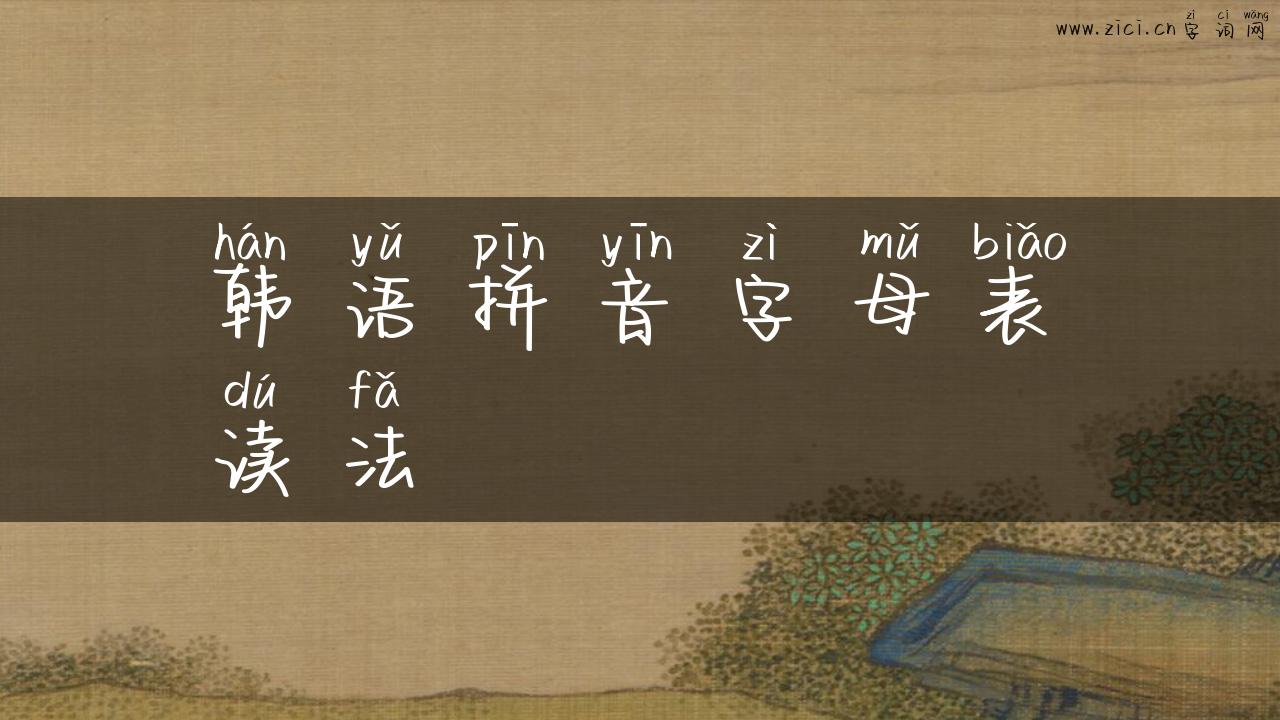 zì cí wǎng
www.zici.cn 字 词 网
hán yǔ pīn yīn zì mǔ biǎo
韩 语 拼 音 字 母 表
dú fǎ
读 法